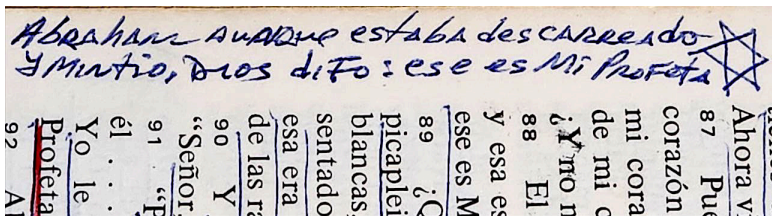 Abraham aunque estaba descarreado
y Mintio, Dios diJo: ese es Mi Profeta
Ahora v
87 Pu
corazón
mi cora
de mi c
¿Y no m
88 El
y esa es
ese es M
89 ¿Q
picaplei
blancas
sentado
esa era
de las ra
90 Y
“Señor,
91 “P
él . . .
Yo le
Profeta
92 Al